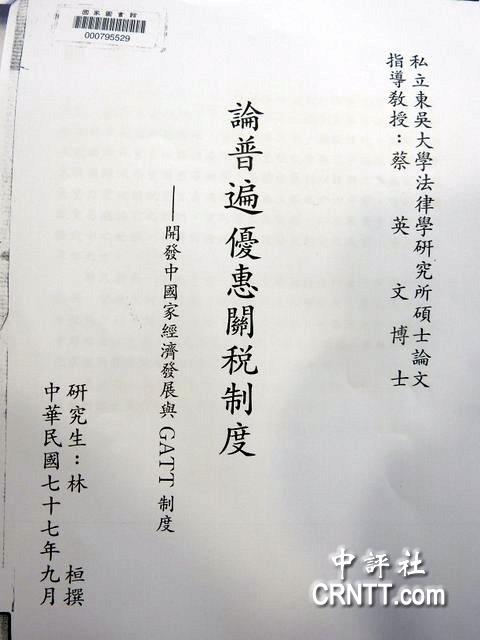 國家圖書館
000795529
私立東吳大學法律學研究所碩士論文
指導教授：蔡英文博士
論普遍優惠關税制度
——開發中國家經濟發展與GATT制度
研究生：林桓撰
中華民國七十七年九月
中評社
CRNTT.com